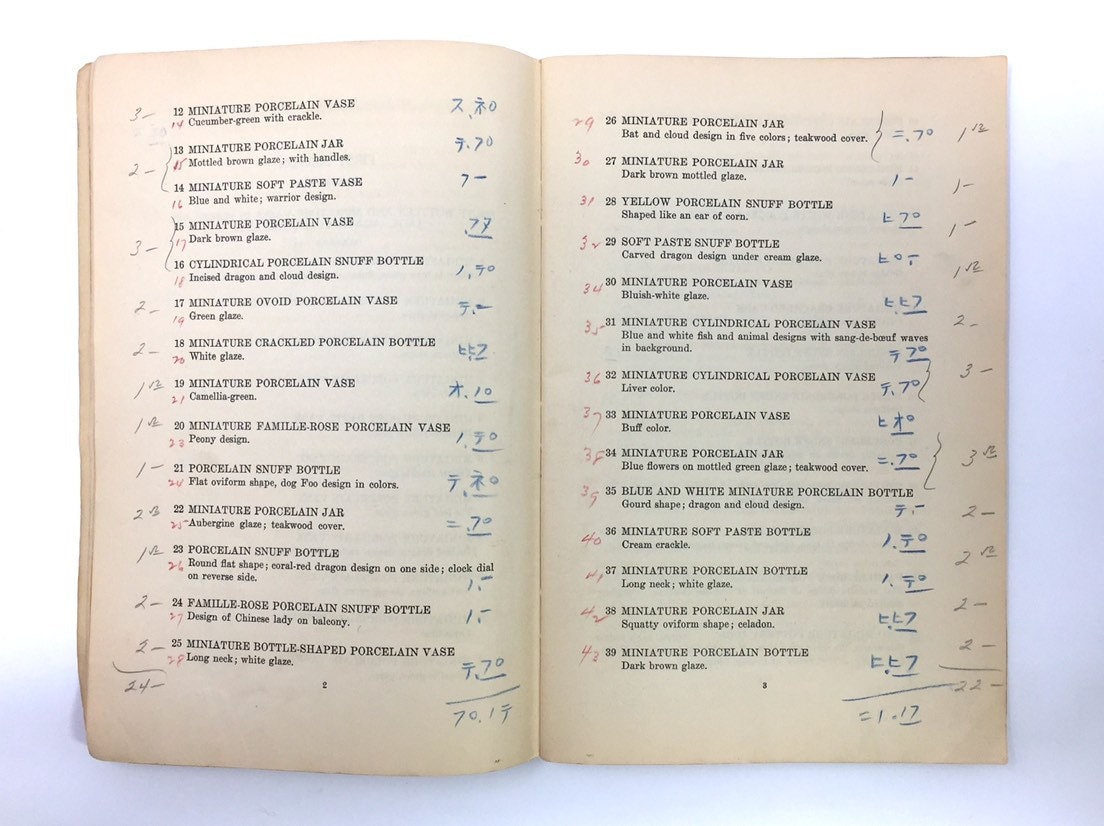 3 — 12 MINIATURE PORCELAIN VASE
14 Cucumber-green with crackle.
13 MINIATURE PORCELAIN JAR
2 — 15 Mottled brown glaze; with handles.
14 MINIATURE SOFT PASTE VASE
16 Blue and white; warrior design.
15 MINIATURE PORCELAIN VASE
3 — 17 Dark brown glaze.
16 CYLINDRICAL PORCELAIN SNUFF BOTTLE
18 Incised dragon and cloud design.
2 — 17 MINIATURE OVOID PORCELAIN VASE
19 Green glaze.
2 — 18 MINIATURE CRACKLED PORCELAIN BOTTLE
20 White glaze.
19 MINIATURE PORCELAIN VASE
21 Camellia-green.
20 MINIATURE FAMILLE-ROSE PORCELAIN VASE
23 Peony design.
1 — 21 PORCELAIN SNUFF BOTTLE
24 Flat oviform shape, dog Foo design in colors.
22 MINIATURE PORCELAIN JAR
25 Aubergine glaze; teakwood cover.
23 PORCELAIN SNUFF BOTTLE
26 Round flat shape; coral-red dragon design on one side; clock dial
on reverse side.
2 — 24 FAMILLE-ROSE PORCELAIN SNUFF BOTTLE
27 Design of Chinese lady on balcony.
2 — 25 MINIATURE BOTTLE-SHAPED PORCELAIN VASE
28 Long neck; white glaze.
24 —
2
29 26 MINIATURE PORCELAIN JAR
Bat and cloud design in five colors; teakwood cover.
30 27 MINIATURE PORCELAIN JAR
Dark brown mottled glaze. 1 —
31 28 YELLOW PORCELAIN SNUFF BOTTLE
Shaped like an ear of corn. 1 —
32 29 SOFT PASTE SNUFF BOTTLE
Carved dragon design under cream glaze.
34 30 MINIATURE PORCELAIN VASE
Bluish-white glaze.
35 31 MINIATURE CYLINDRICAL PORCELAIN VASE 2 —
Blue and white fish and animal designs with sang-de-bœuf waves
in background.
36 32 MINIATURE CYLINDRICAL PORCELAIN VASE 3 —
Liver color.
37 33 MINIATURE PORCELAIN VASE
Buff color.
38 34 MINIATURE PORCELAIN JAR
Blue flowers on mottled green glaze; teakwood cover.
39 35 BLUE AND WHITE MINIATURE PORCELAIN BOTTLE
Gourd shape; dragon and cloud design. 2 —
40 36 MINIATURE SOFT PASTE BOTTLE
Cream crackle.
41 37 MINIATURE PORCELAIN BOTTLE
Long neck; white glaze.
42 38 MINIATURE PORCELAIN JAR 2 —
Squatty oviform shape; celadon.
43 39 MINIATURE PORCELAIN BOTTLE 2 —
Dark brown glaze.
22 —
3